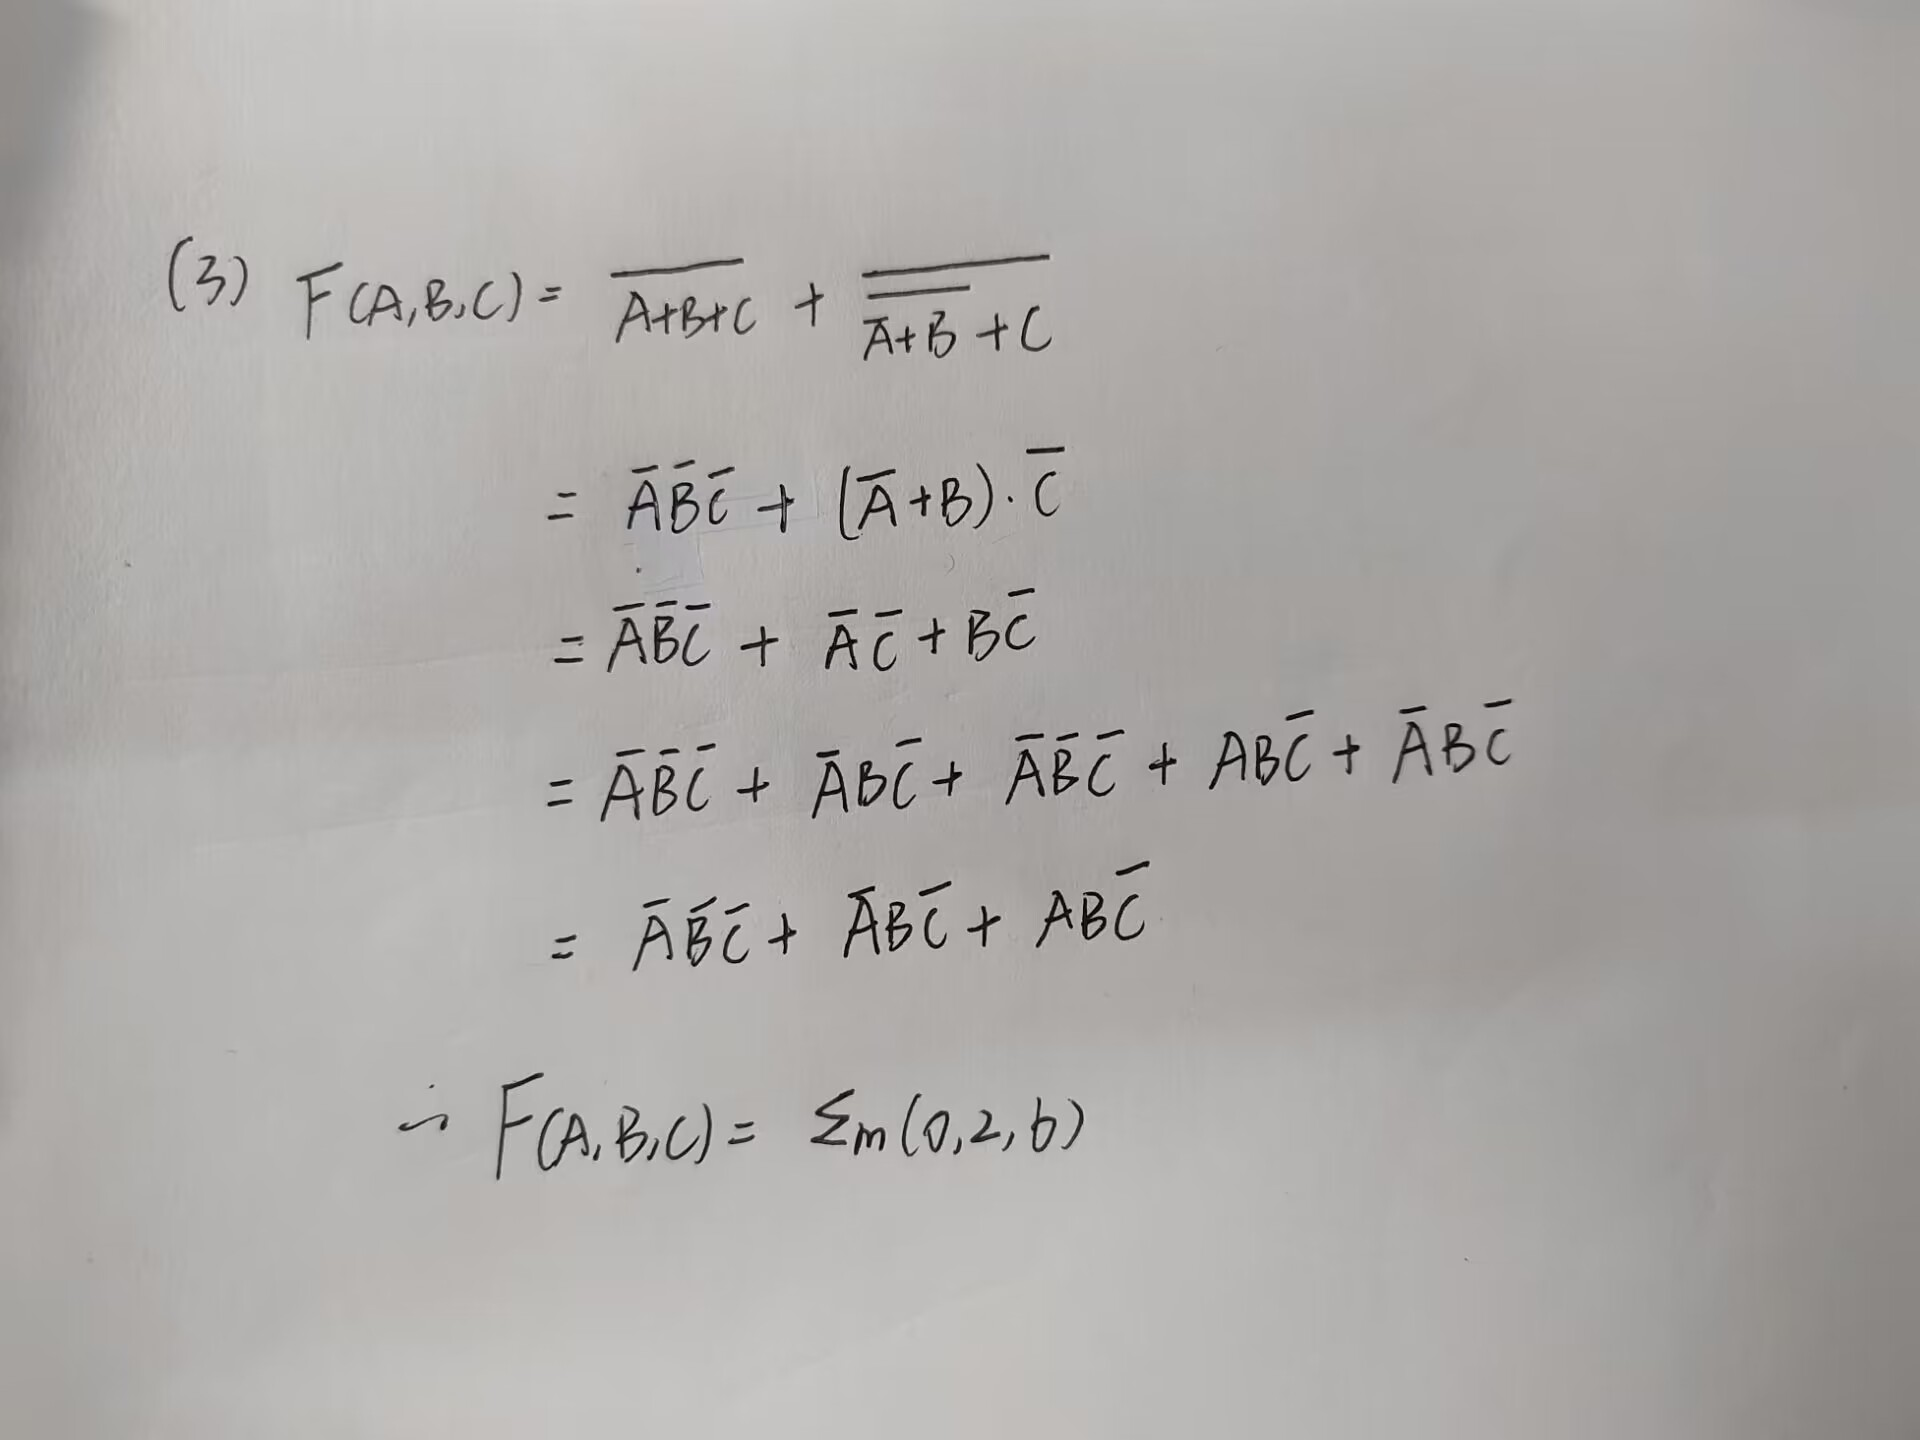 (3) F(A,B,C) = \overline{A+B+C} + \overline{\overline{\overline{A}+B}+C}
= \overline{A}\overline{B}\overline{C} + (\overline{A}+B)·\overline{C}
= \overline{A}\overline{B}\overline{C} + \overline{A}\overline{C} + B\overline{C}
= \overline{A}\overline{B}\overline{C} + \overline{A}B\overline{C} + \overline{A}\overline{B}\overline{C} + AB\overline{C} + \overline{A}B\overline{C}
= \overline{A}\overline{B}\overline{C} + \overline{A}B\overline{C} + AB\overline{C}
∴ F(A,B,C) = Σm(0,2,6)